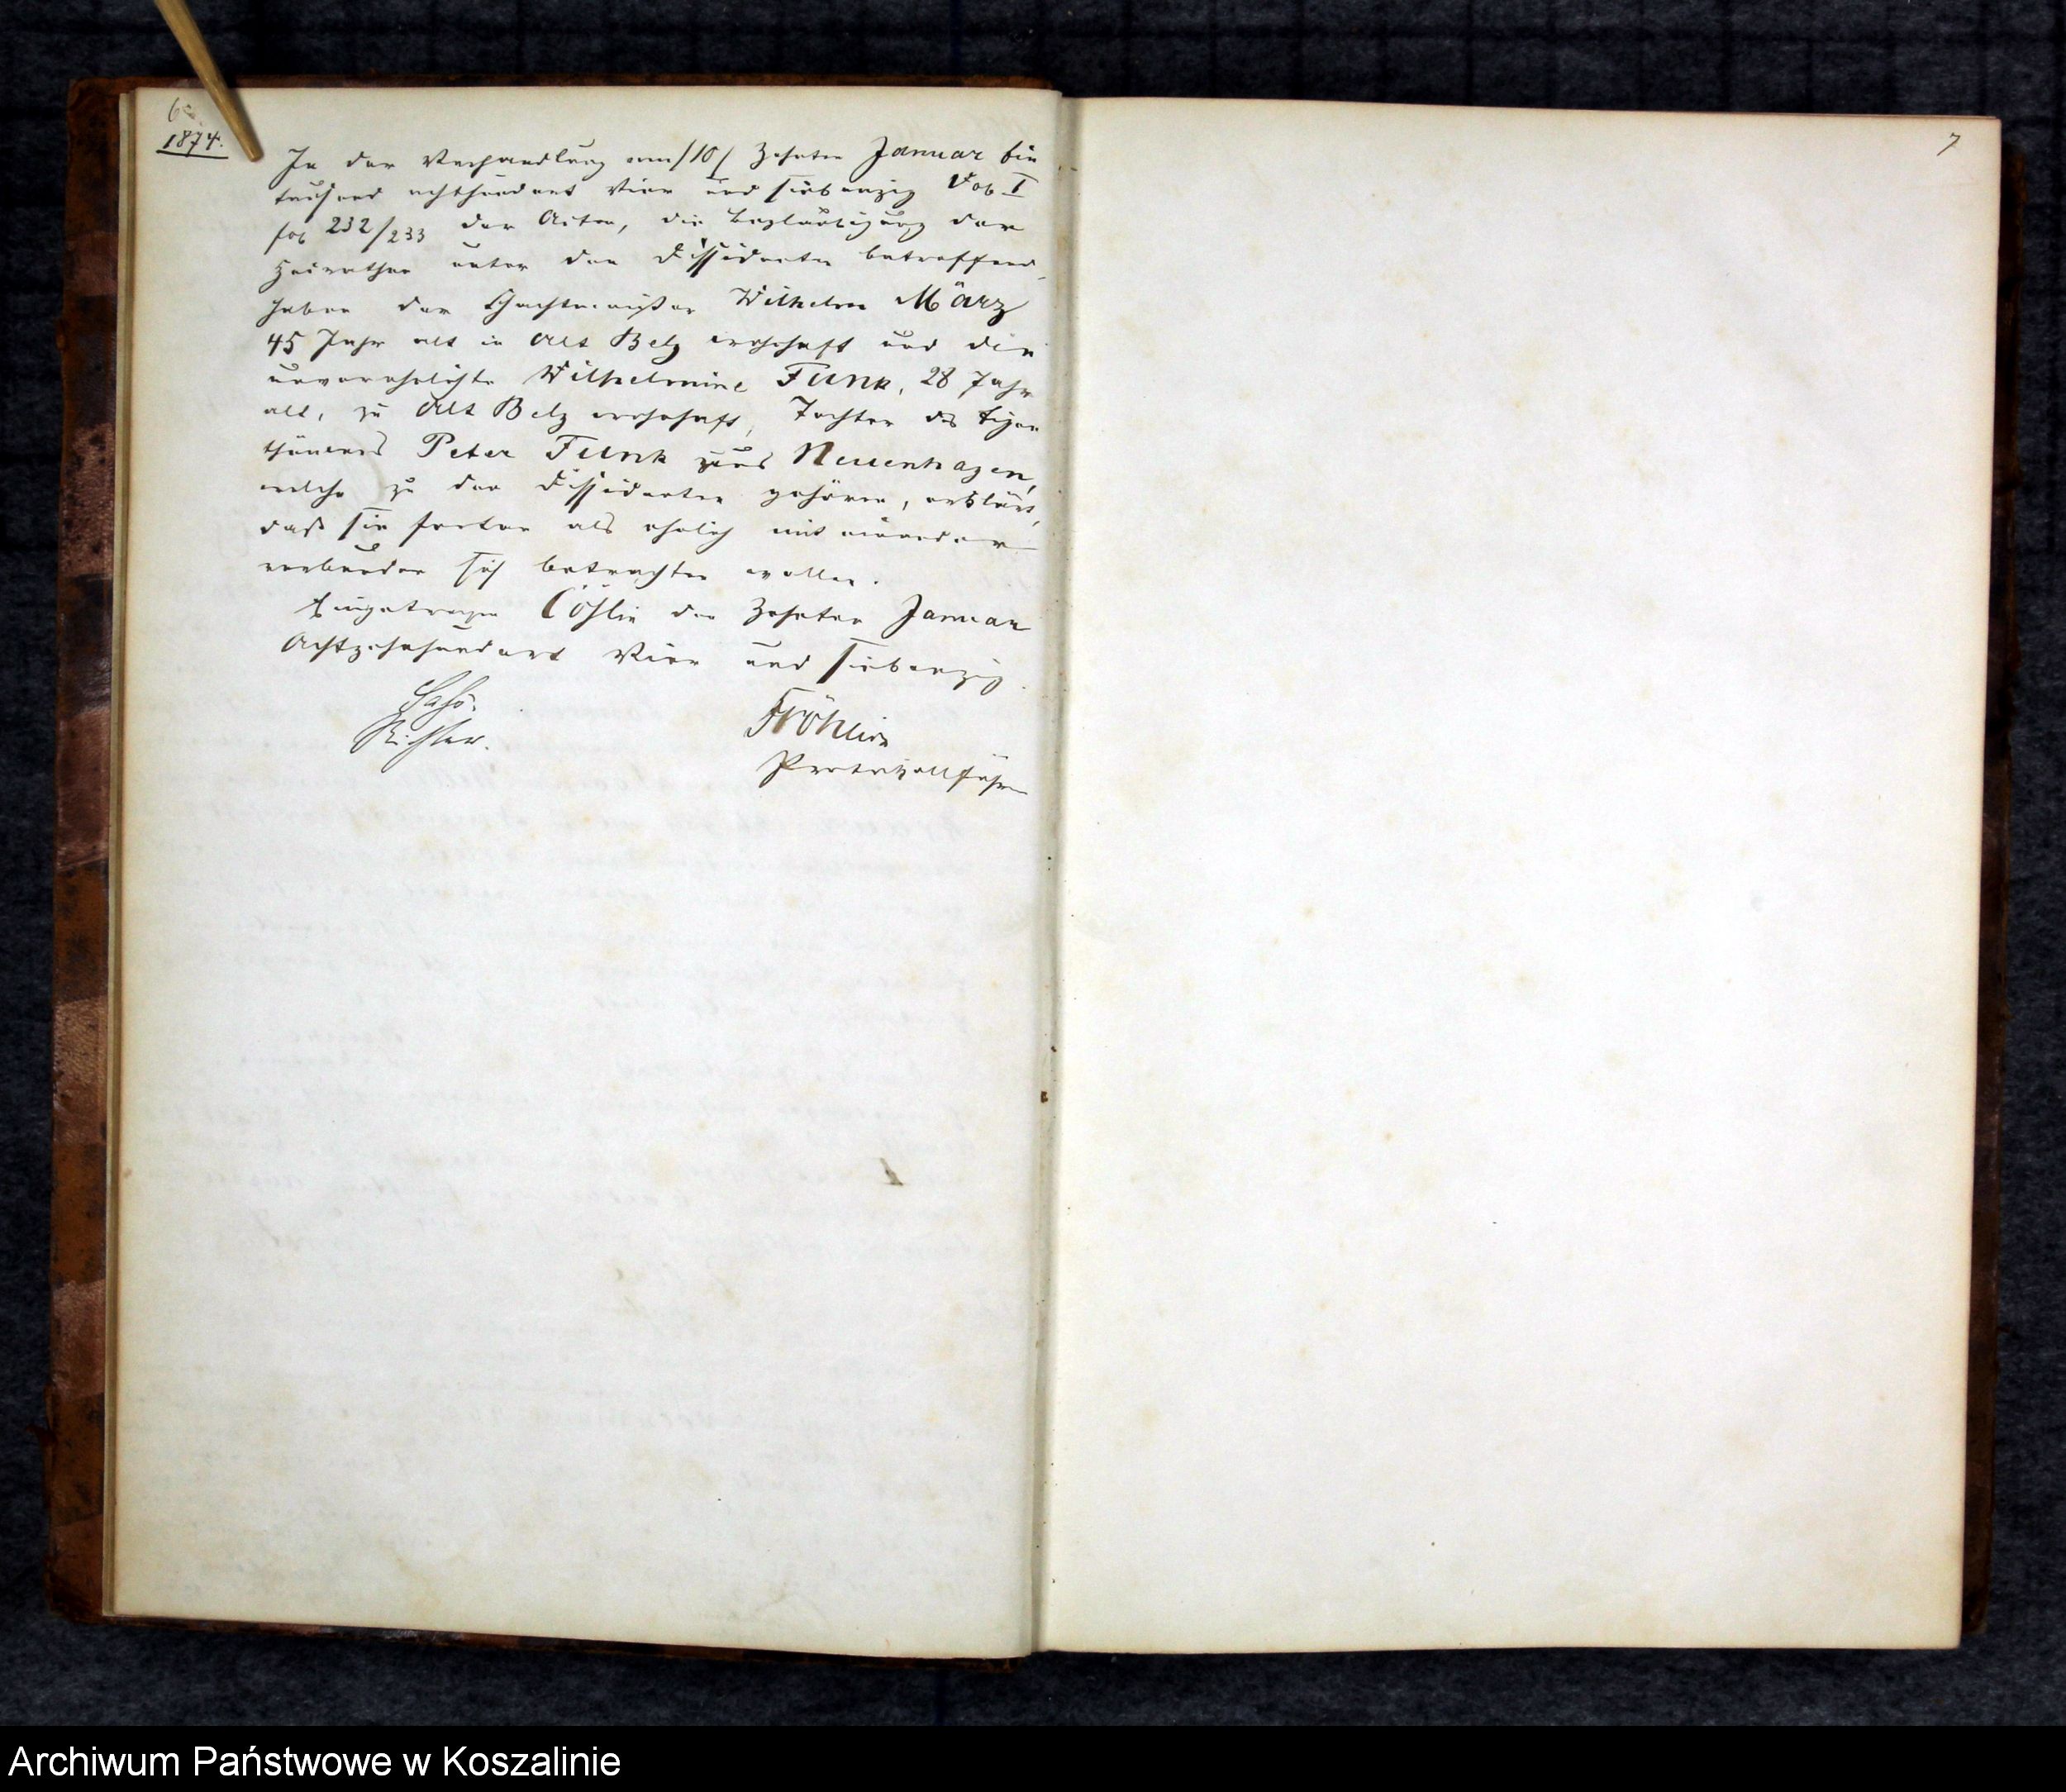 1874.
In der Verhandlung vom /10/ Zehnten Januar Ein
tausend achthundert Vier und siebenzig Vol I
fol 232/233 der Acten, die Beglaubigung der
Heirathen unter den Dissidenten betreffend,
haben der Schachtmeister Wilhelm März
45 Jahr alt in Alt Belz wohnhaft und die
unverehelichte Wilhelmine Funk, 28 Jahr
alt, zu Alt Belz wohnhaft, Tochter des Eigen
thümers Peter Funk aus Neuenhagen,
welche zu den Dissidenten gehören, erklärt,
daß sie fortan als ehelich mit einander
verbunden sich betrachten wollen.
Eingetragen Cöslin den Zehnten Januar
Achtzehnhundert Vier und siebenzig.
Richter.
Fröhlich
Protokollführer
7
Archiwum Państwowe w Koszalinie